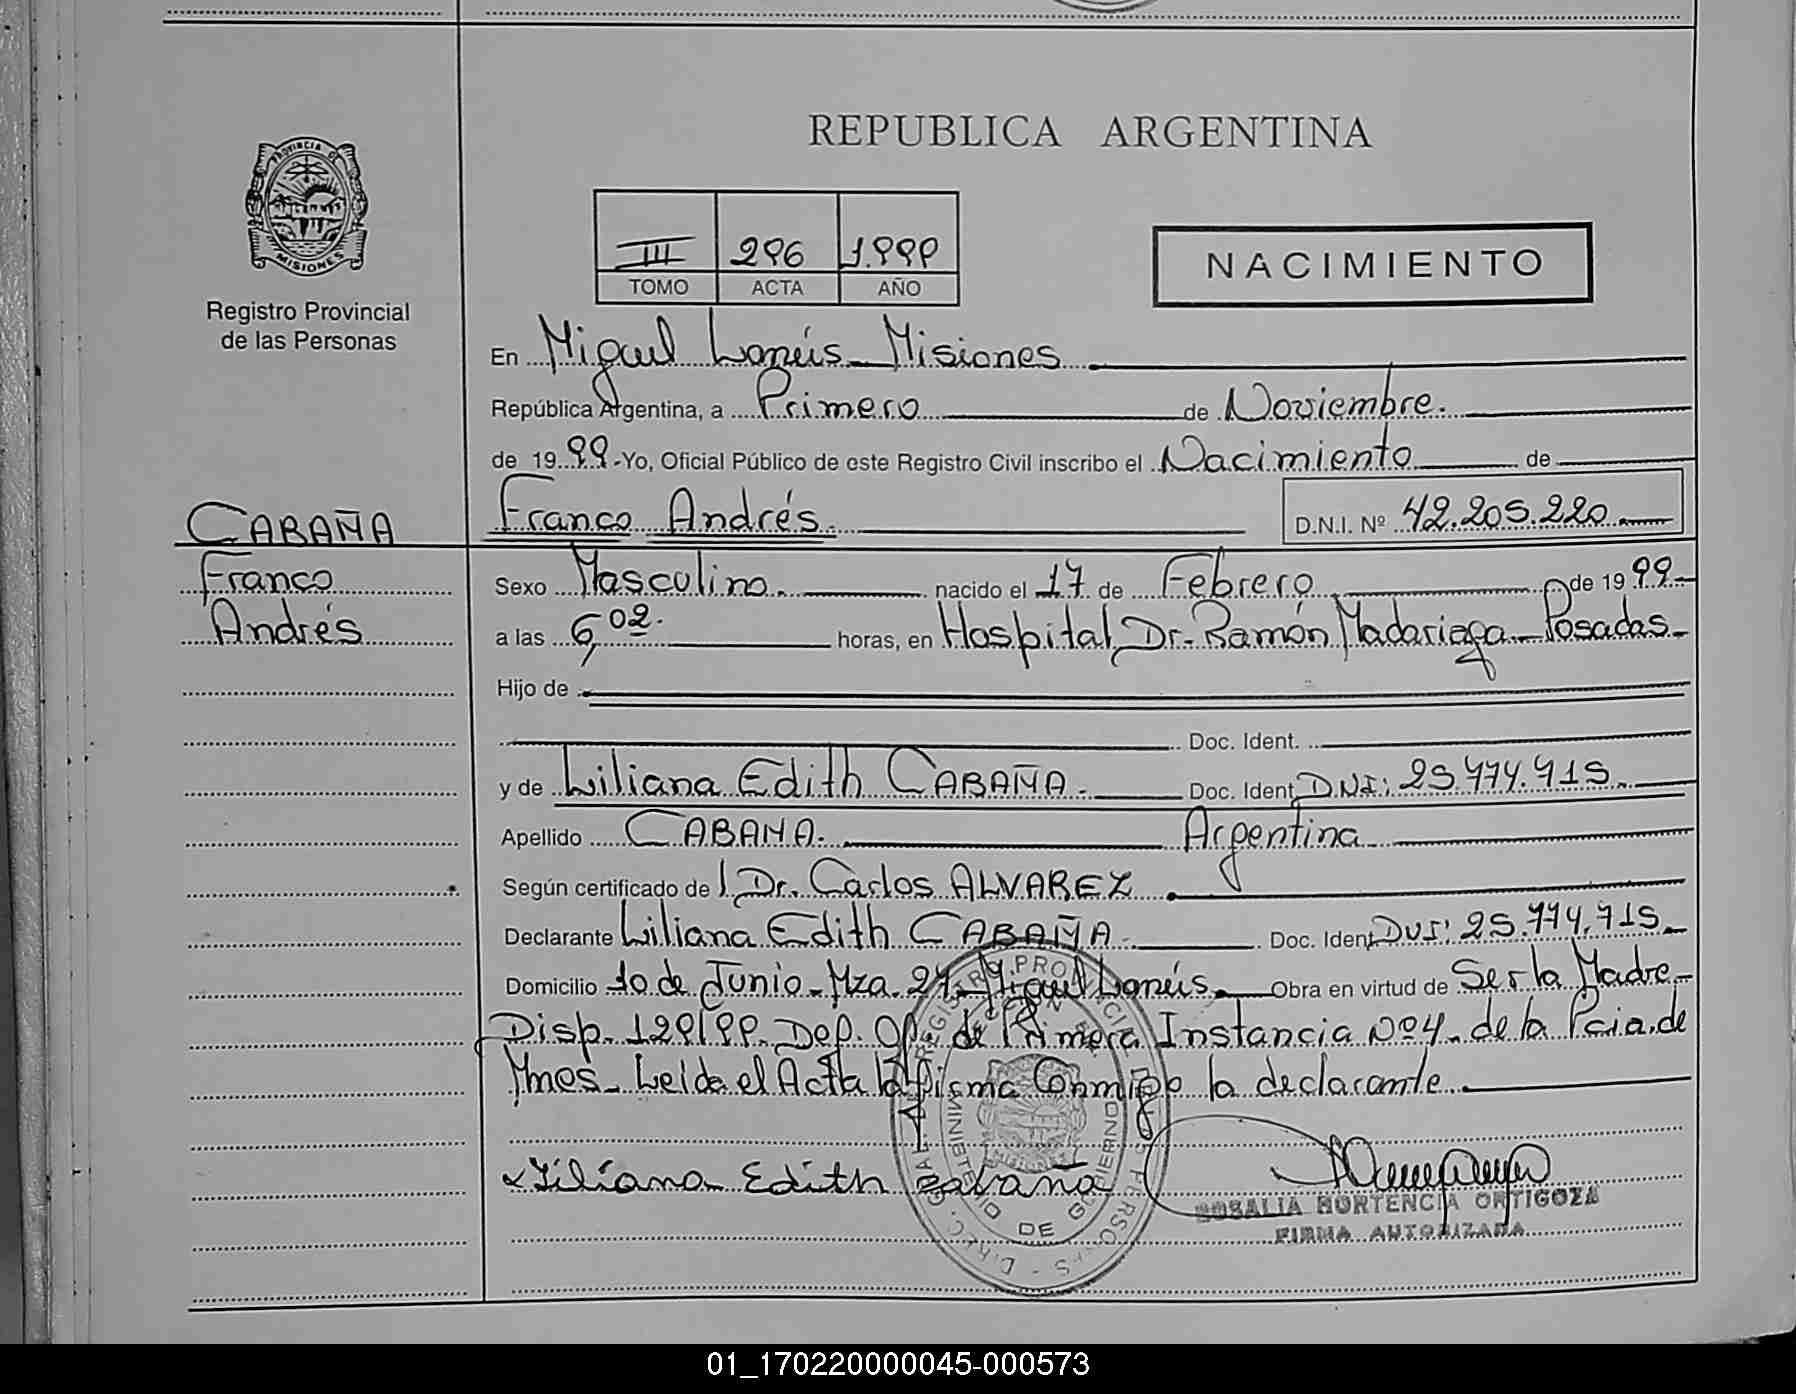 REPUBLICA ARGENTINA
PROVINCIA D
MISIONES
Registro Provincial
de las Personas
III 296 1.999
TOMO ACTA AÑO
NACIMIENTO
En Miguel Lanús - Misiones
República Argentina, a Primero de Noviembre.
de 19 99 - Yo, Oficial Público de este Registro Civil inscribo el Nacimiento de
CABAÑA
Franco Andrés.
D.N.I. Nº 42.205.220
Franco
Andrés
Sexo Masculino. nacido el 17 de Febrero de 19 99
a las 6,02. horas, en Hospital Dr. Ramón Madariaga - Posadas
Hijo de
Doc. Ident.
y de Liliana Edith CABAÑA. Doc. Ident. D.N.I: 25.774.715.
Apellido CABAÑA. Argentina
Según certificado de Dr. Carlos ALVAREZ
Declarante Liliana Edith CABAÑA. Doc. Ident. DNI: 25.774.715
Domicilio 10 de Junio - Mza. 27 - Miguel Lanús. Obra en virtud de Ser la Madre -
Disp. 129/99. Dep. de Primera Instancia Nº4. de la Pcia. de
Mnes - Leída el Acta la firma Conmigo la declarante.
Liliana Edith Cabaña
ROSALIA HORTENCIA ORTIGOZA
FIRMA AUTORIZADA
MINISTERIO DE GOBIERNO
MISIONES
01_170220000045-000573